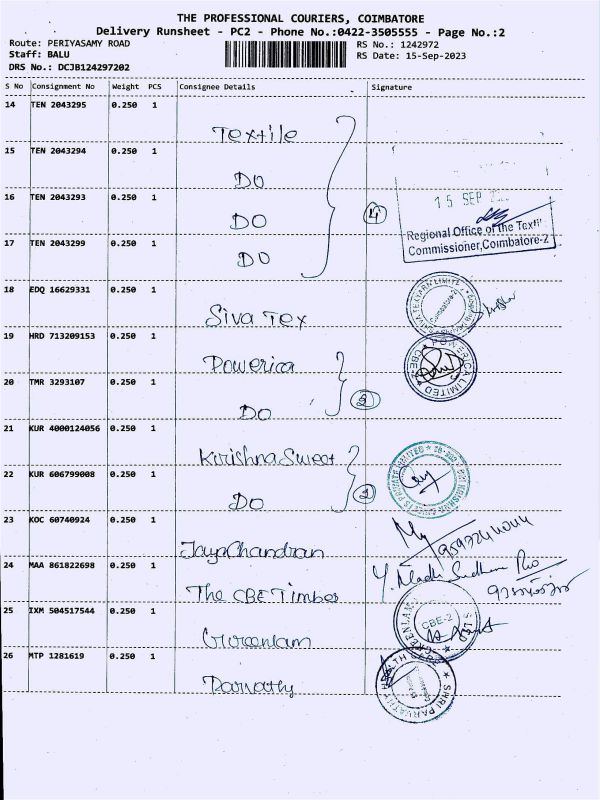 THE PROFESSIONAL COURIERS, COIMBATORE
Delivery Runsheet - PC2 - Phone No.:0422-3505555 - Page No.:2
Route: PERIYASAMY ROAD
RS No.: 1242972
Staff: BALU
RS Date: 15-Sep-2023
DRS No.: DCJB124297202
S No Consignment No Weight PCS Consignee Details Signature
14 TEN 2043295 0.250 1
Textile
15 TEN 2043294 0.250 1
DO
16 TEN 2043293 0.250 1
DO
4
15 SEP
17 TEN 2043299 0.250 1
DO
Regional Office of the Textile
Commissioner, Coimbatore-2
18 EDQ 16629331 0.250 1
Siva Tex
19 HRD 713209153 0.250 1
Powerica
POWERICA LIMITED CBE
20 TMR 3293107 0.250 1
DO
2
21 KUR 4000124056 0.250 1
Krishna Sweet
22 KUR 606799008 0.250 1
DO
2
23 KOC 60740924 0.250 1
JayaChandran
24 MAA 861822698 0.250 1
The CBE Timber
25 IXM 504517544 0.250 1
Greenlam
GREENLAM
CBE-2
26 MTP 1281619 0.250 1
Parvathy
SHRI PARVATHY HEALTH CARE